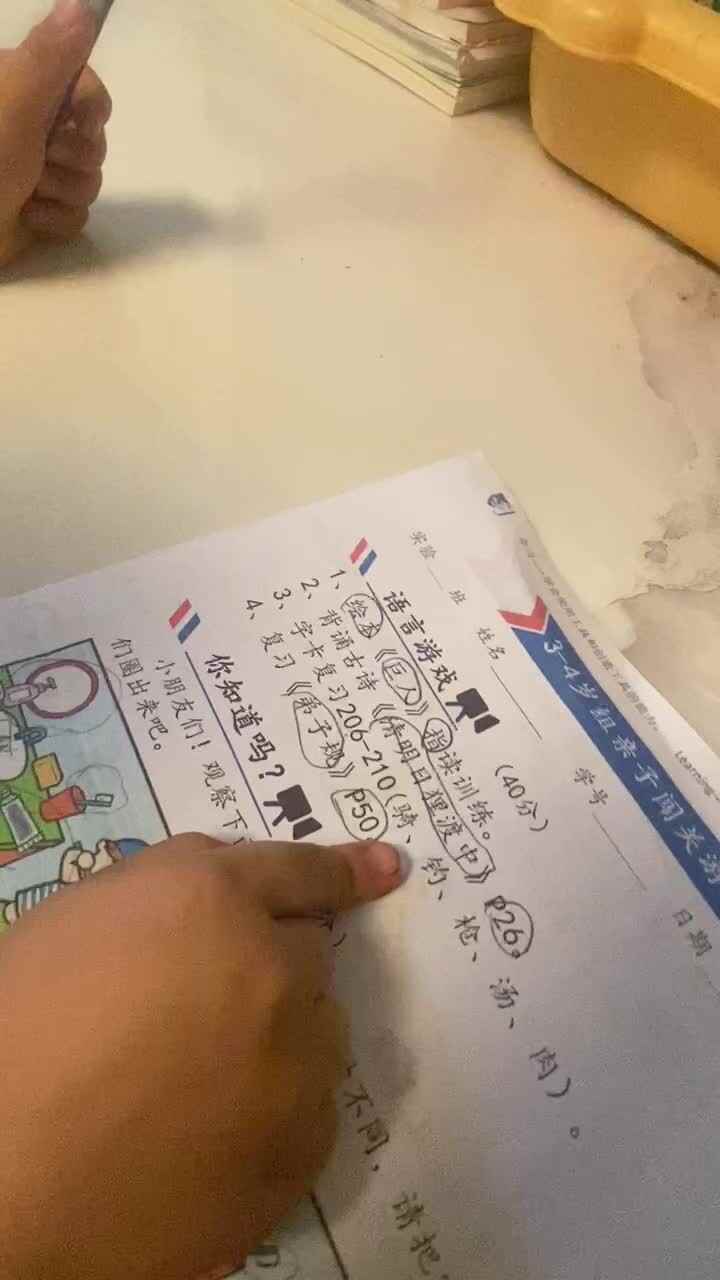 Learning
3-4岁组亲子闯关游
实验 班 姓名 学号 日期
语言游戏 (40分)
1、绘本《巨人》指读训练。
2、背诵古诗《清明日狸渡中》P26。
3、字卡复习206-210(骑、钓、枪、汤、肉)。
4、复习《弟子规》P50
你知道吗?
小朋友们!观察下 不同,请把
们圈出来吧。